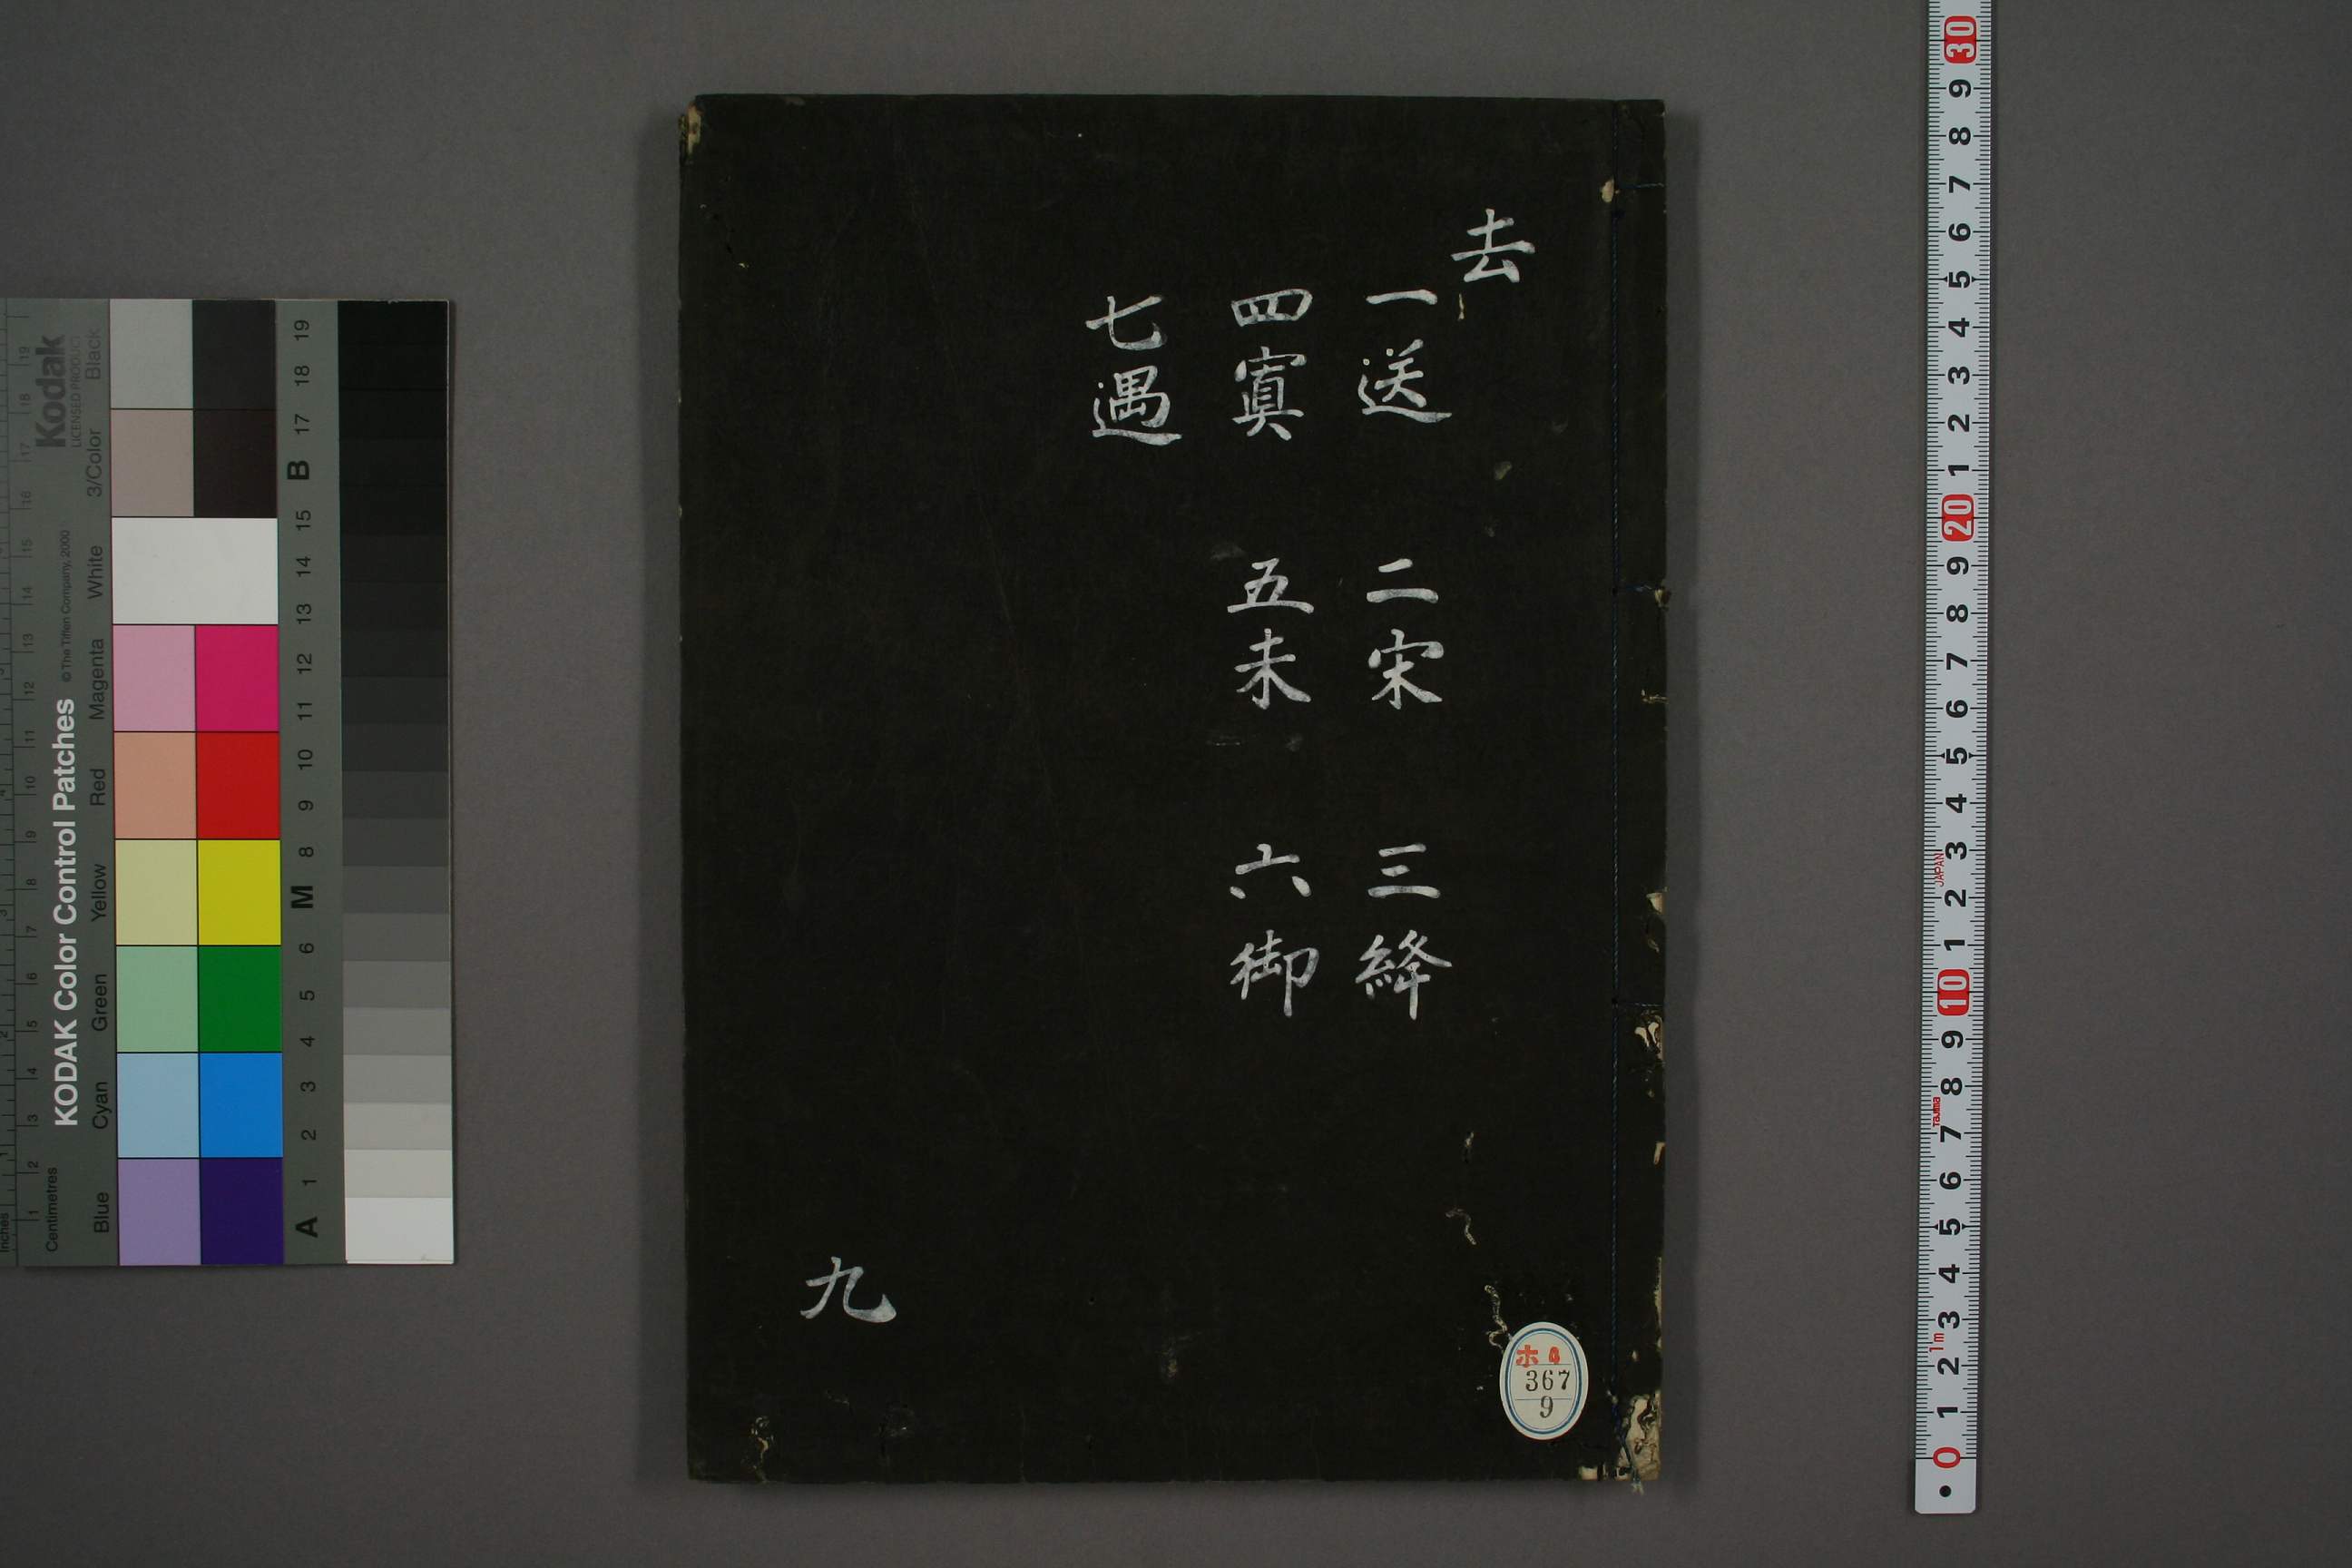 去
一送 二宋 三絳
四寘 五未 六御
七遇
九
ホ4
367
9
KODAK Color Control Patches
© The Tiffen Company, 2000
Kodak
LICENSED PRODUCT
Inches
Centimetres
Blue Cyan Green Yellow Red Magenta White 3/Color Black
A 1 2 3 4 5 6 M 8 9 10 11 12 13 14 15 B 17 18 19
30 9 8 7 6 5 4 3 2 1 20 9 8 7 6 5 4 3 2 1 10 9 8 7 6 5 4 3 2 1 0
JAPAN
Tajima
1m